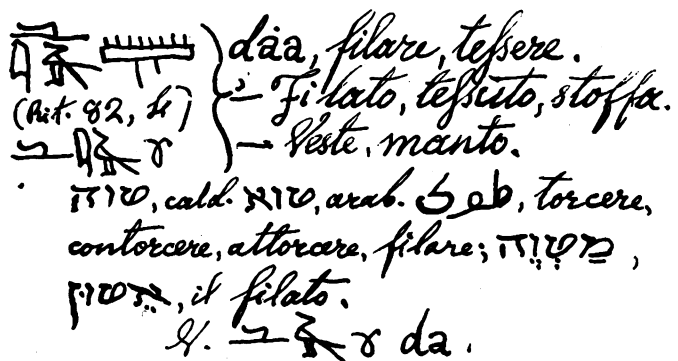 dȧa, filare, tessere.
— Filato, tessuto, stoffa.
(Rit. 82, 4)
— Veste, manto.
טוה, cald. טוא, arab. طوى, torcere,
contorcere, attorcere, filare; מַטְוֶה,
אֵטוּן, il filato.
V. da.